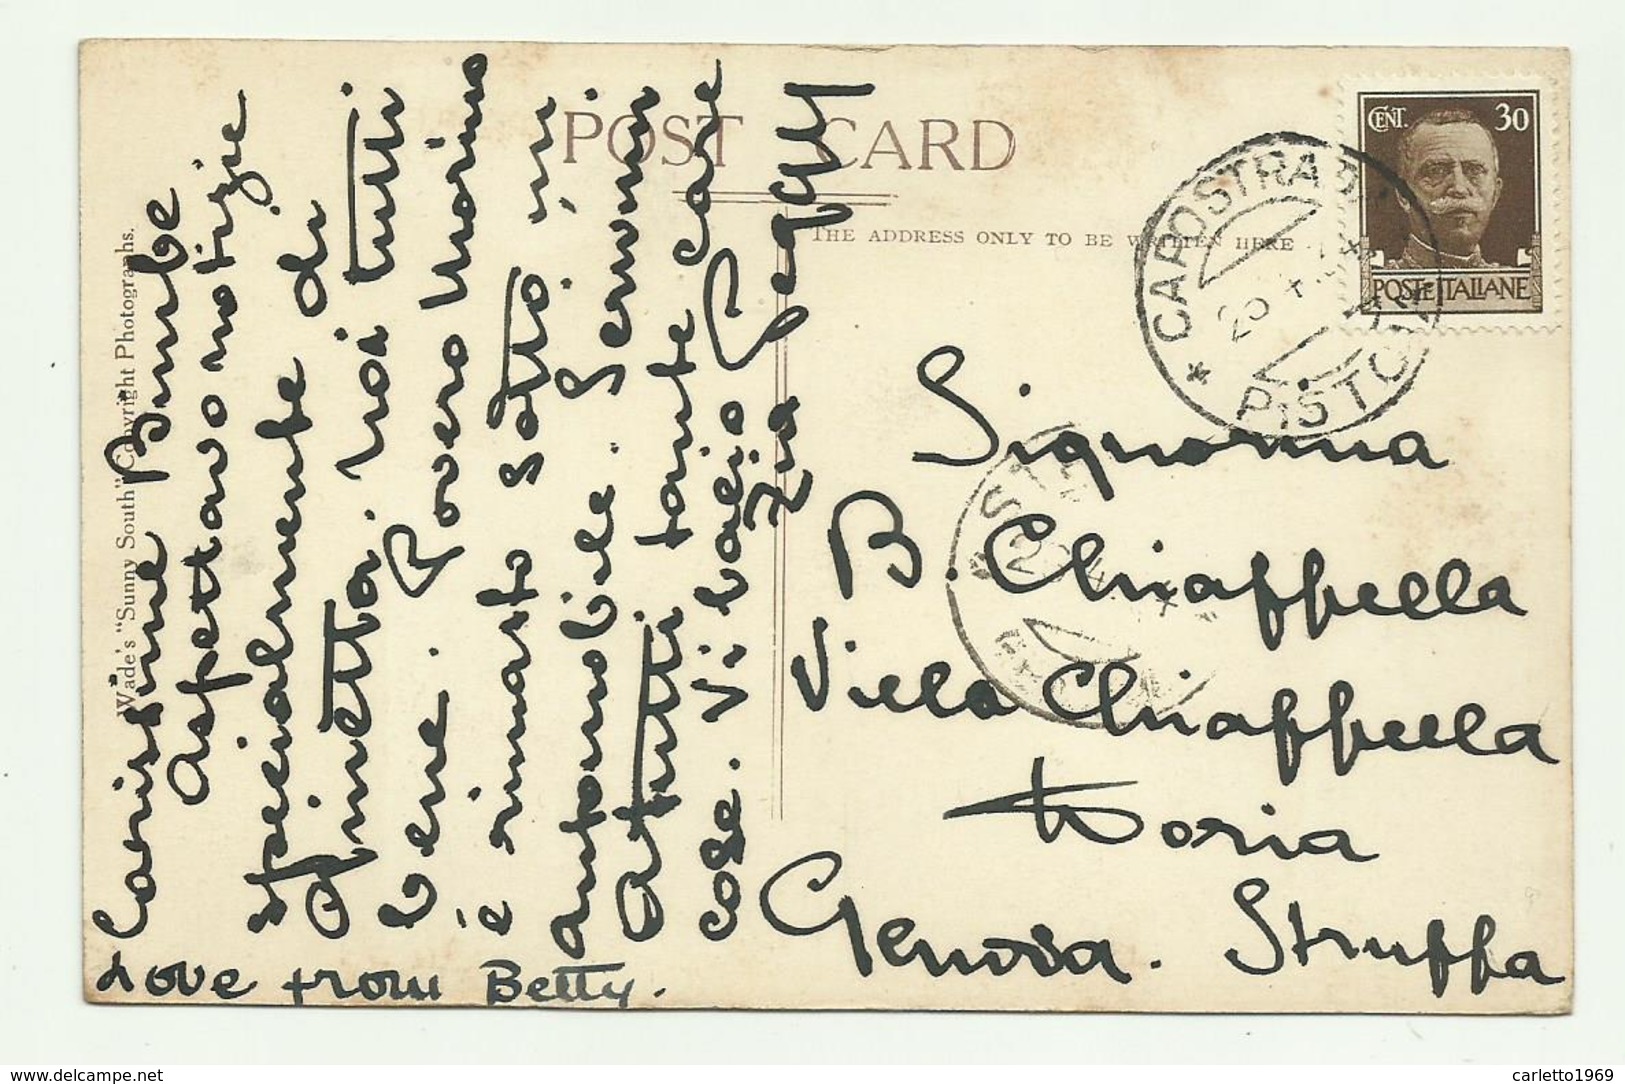 POST CARD
THE ADDRESS ONLY TO BE WRITTEN HERE
Wade's "Sunny South" Copyright Photographs.
CENT. 30
POSTE ITALIANE
CAPOSTRADA
PISTOIA
Carissime Bimbe
Aspettavo notizie
specialmente di
Ginetta. Noi tutti
bene. Povero Morino
è rimasto sotto un
automobile.
A tutti tante care
cose. Vi bacio
Zia Peggy
Love from Betty.
Signorina
B. Chiappella
Villa Chiappella
Doria
Genova. Struppa
delcampe.net
carletto1969